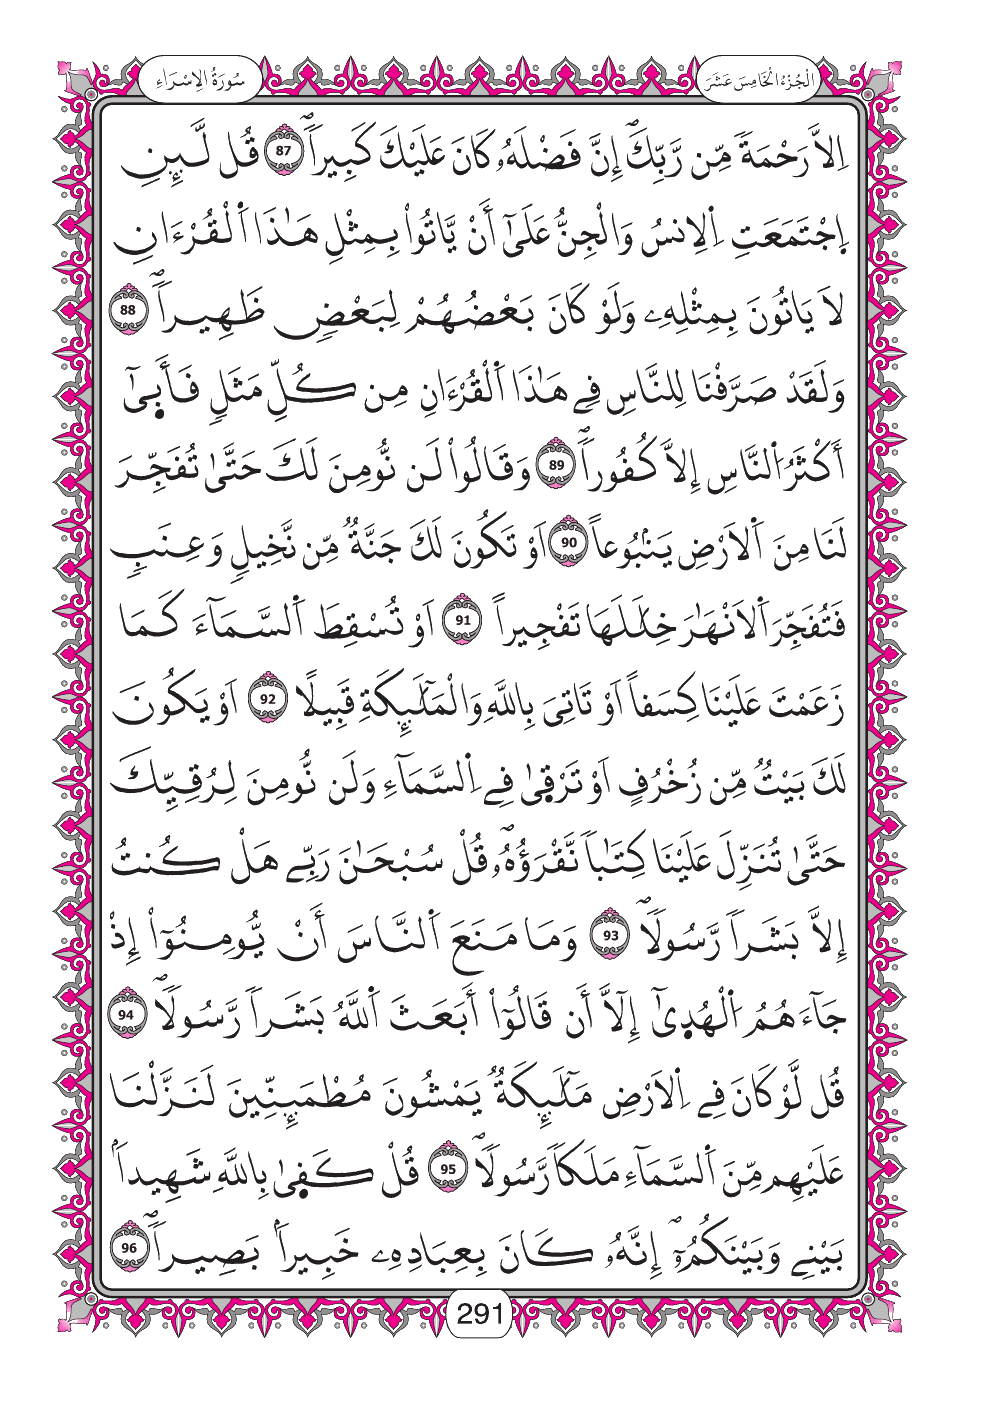 سُورَةُ الِاسْرَاءِ
الْجُزْءُ الْخَامِسَ عَشَرَ
اِلاَّ رَحْمَةً مِّن رَّبِّكَۖ إِنَّ فَضْلَهُۥ كَانَ عَلَيْكَ كَبِيراًۖ 87 قُل لَّئِنِ
اِ۪جْتَمَعَتِ اِ۬لِانسُ وَالْجِنُّ عَلَىٰٓ أَنْ يَّاتُواْ بِمِثْلِ هَٰذَا اَ۬لْقُرْءَانِ
لَا يَاتُونَ بِمِثْلِهِۦ وَلَوْ كَانَ بَعْضُهُمْ لِبَعْضٍ ظَهِيراًۖ 88
وَلَقَدْ صَرَّفْنَا لِلنَّاسِ فِے هَٰذَا اَ۬لْقُرْءَانِ مِن كُلِّ مَثَلٍ فَأَب۪يٰٓ
أَكْثَرُ اُ۬لنَّاسِ إِلاَّ كُفُوراًۖ 89 وَقَالُواْ لَن نُّومِنَ لَكَ حَتَّىٰ تُفَجِّرَ
لَنَا مِنَ اَ۬لَارْضِ يَنۢبُوعاً 90 اَوْ تَكُونَ لَكَ جَنَّةٌ مِّن نَّخِيلٍ وَعِنَبٍ
فَتُفَجِّرَ اَ۬لَانْهَٰرَ خِلَٰلَهَا تَفْجِيراً 91 اَوْ تُسْقِطَ اَ۬لسَّمَآءَ كَمَا
زَعَمْتَ عَلَيْنَا كِسَفاً اَوْ تَاتِيَ بِاللَّهِ وَالْمَلَٰٓئِكَةِ قَبِيلًا 92 اَوْ يَكُونَ
لَكَ بَيْتٌ مِّن زُخْرُفٍ اَوْ تَرْق۪يٰ فِے اِ۬لسَّمَآءِ وَلَن نُّومِنَ لِرُقِيِّكَ
حَتَّىٰ تُنَزِّلَ عَلَيْنَا كِتَٰباً نَّقْرَؤُهُۥۖ قُلْ سُبْحَانَ رَبِّے هَلْ كُنتُ
إِلاَّ بَشَراً رَّسُولاًۖ 93 وَمَا مَنَعَ اَ۬لنَّاسَ أَنْ يُّومِنُوٓاْ إِذْ
جَآءَهُمُ اُ۬لْهُد۪يٰٓ إِلَّآ أَن قَالُوٓاْ أَبَعَثَ اَ۬للَّهُ بَشَراً رَّسُولاًۖ 94
قُل لَّوْ كَانَ فِے اِ۬لَارْضِ مَلَٰٓئِكَةٌ يَمْشُونَ مُطْمَئِنِّينَ لَنَزَّلْنَا
عَلَيْهِم مِّنَ اَ۬لسَّمَآءِ مَلَكاً رَّسُولاًۖ 95 قُلْ كَف۪يٰ بِاللَّهِ شَهِيداَۢ
بَيْنِے وَبَيْنَكُمُۥٓۖ إِنَّهُۥ كَانَ بِعِبَادِهِۦ خَبِيراَۢ بَصِيراًۖ 96
291